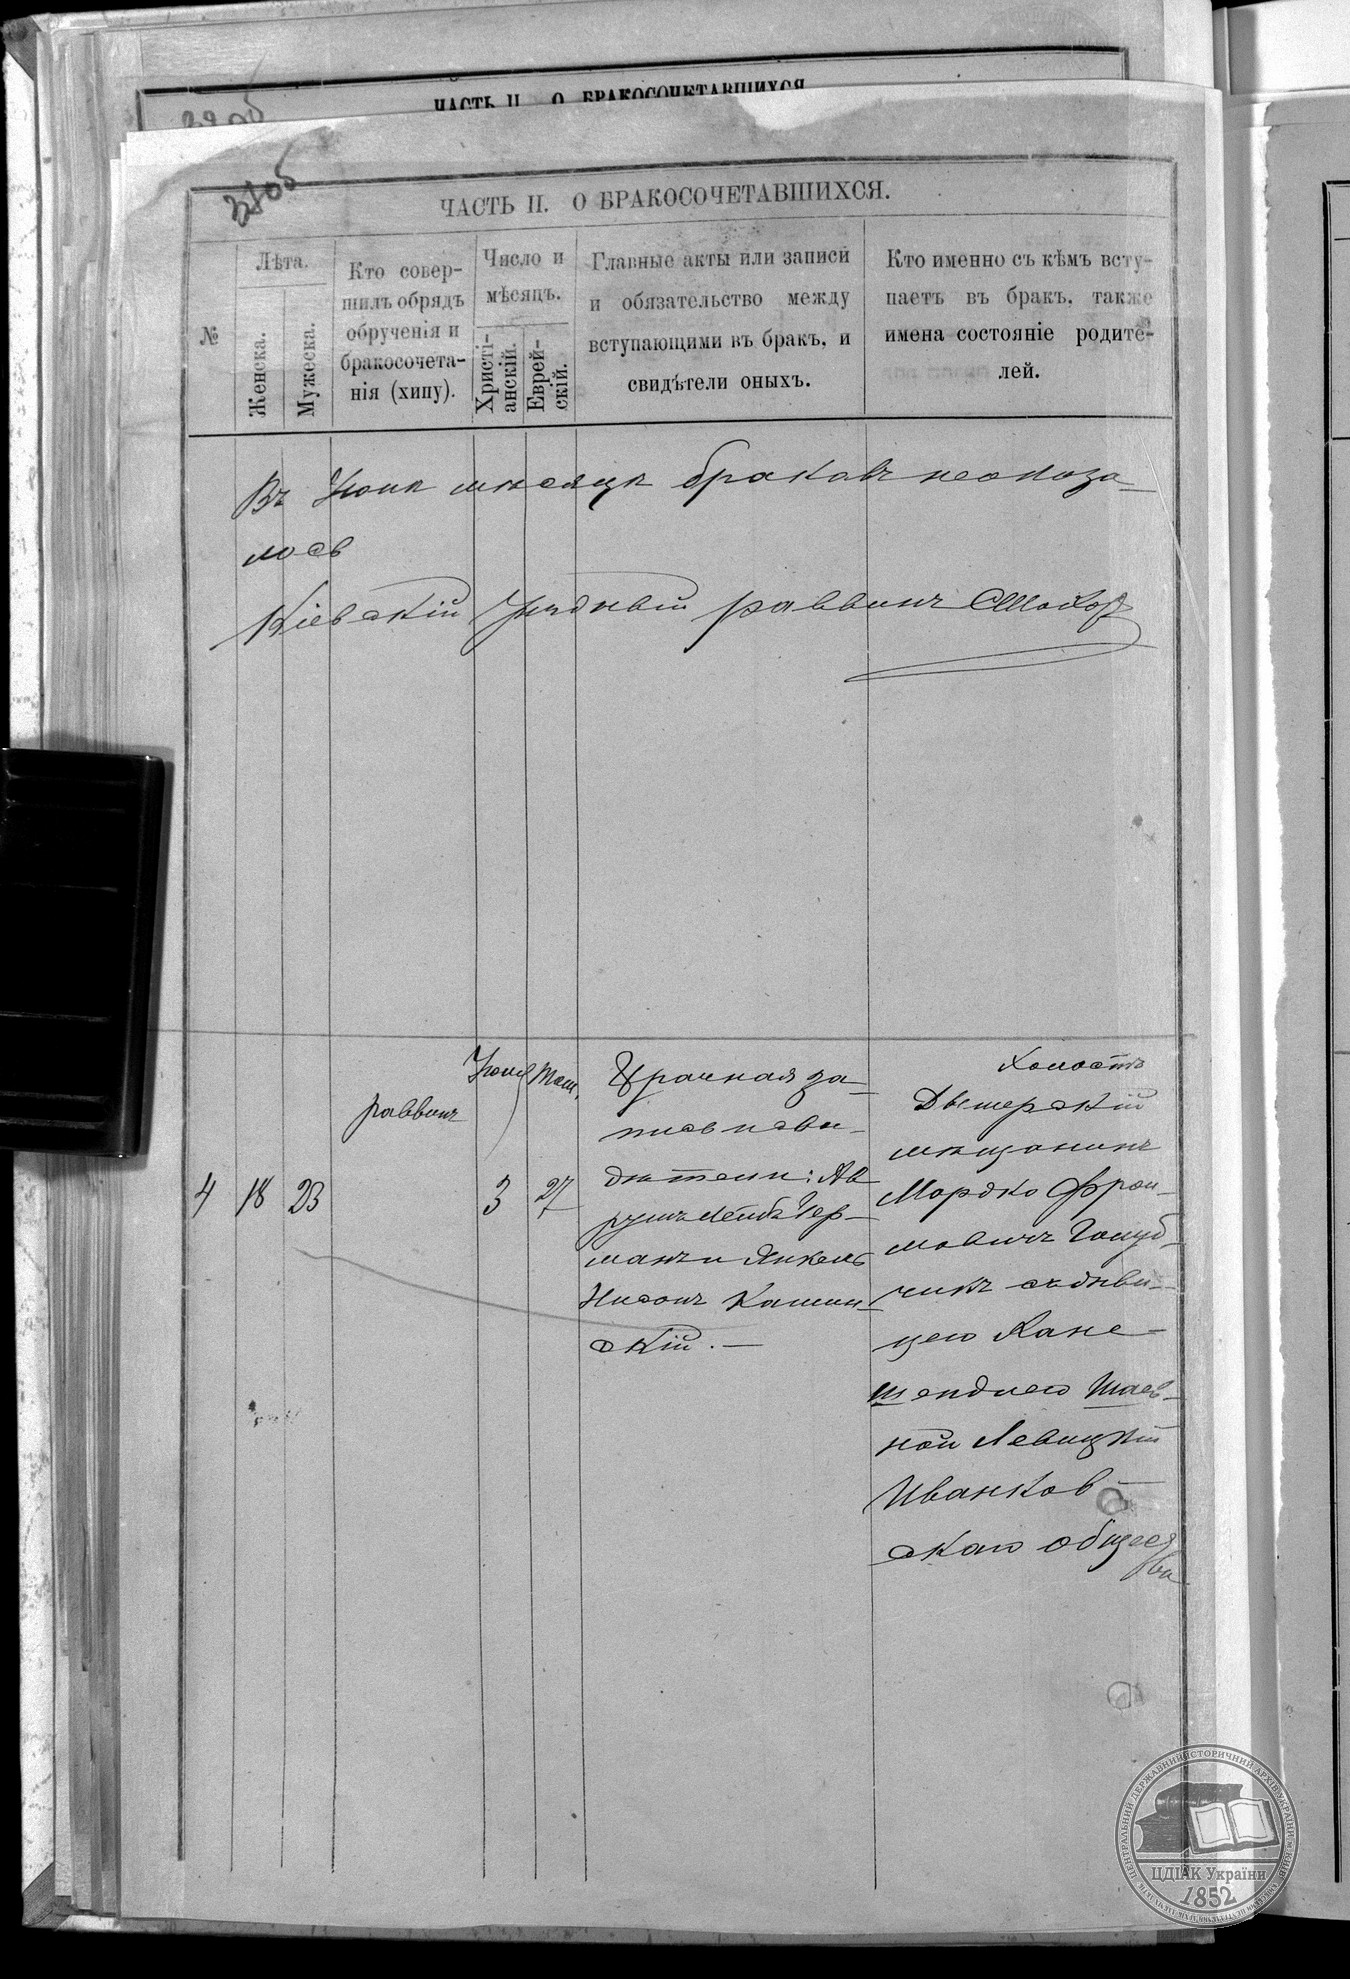 ЧАСТЬ II. О БРАКОСОЧЕТАВШИХСЯ
ЧАСТЬ II. О БРАКОСОЧЕТАВШИХСЯ.
№
Лѣта.
Женска.
Мужеска.
Кто совер-
шилъ обрядъ
обрученія и
бракосочета-
нія (хипу).
Число и
мѣсяцъ.
Христі-
анскій.
Еврей-
скій.
Главные акты или записи
и обязательство между
вступающими въ бракъ, и
свидѣтели оныхъ.
Кто именно съ кѣмъ всту-
паетъ въ бракъ, также
имена состояніе родите-
лей.
Въ мѣсяцѣ браковъ неоказа-
лось
Кіевскій Уѣздный раввинъ
4
18
23
раввинъ
3
27
Брачная за-
пись и сви-
дѣтели: Ав
румъ Лейбъ Чер-
манъ и Янкель
Нисонъ Камин-
скій. —
Холостъ
Дымерскій
мѣщанинъ
Мордко Фрои-
мовичъ Голуб-
чикъ съ дѣви-
цею Хане-
шейндлею Шаев-
ной Левицкой
Иванков-
скаго общест
ва
ЦЕНТРАЛЬНИЙ ДЕРЖАВНИЙ ІСТОРИЧНИЙ АРХІВ УКРАЇНИ М.КИЇВ
ЦДІАК України
1852